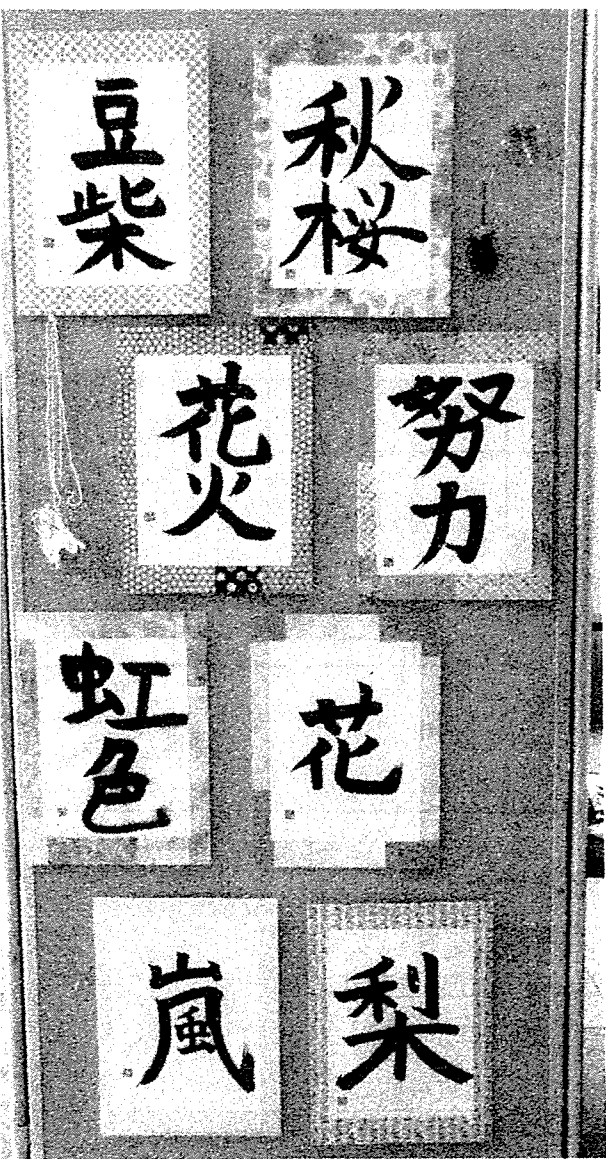 豆柴
秋桜
花火
努力
虹色
花
嵐
梨